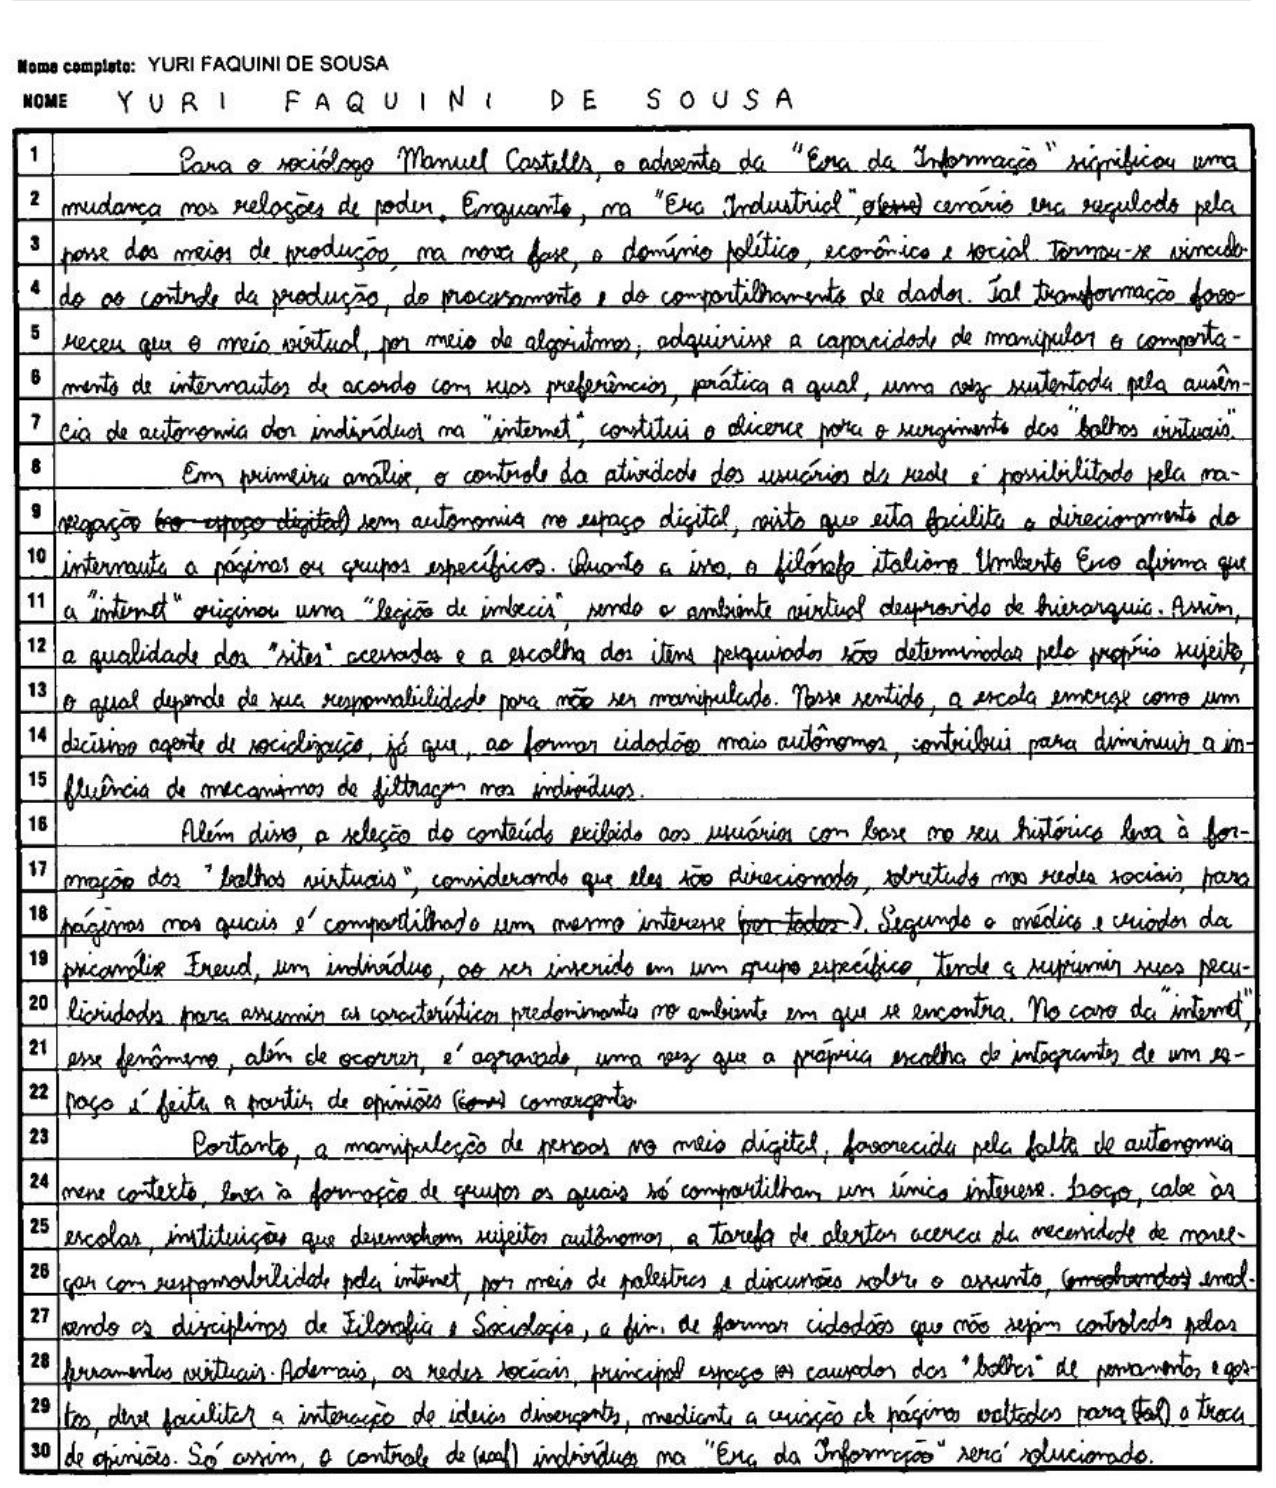 Nome completo: YURI FAQUINI DE SOUSA
NOME YURI FAQUINI DE SOUSA
1 Para o sociólogo Manuel Castells, o advento da "Era da Informação" significou uma
2 mudança nas relações de poder. Enquanto, na "Era Industrial", o (esse) cenário era regulado pela
3 posse dos meios de produção, na nova fase, o domínio político, econômico e social tornou-se vincula-
4 do ao controle da produção, do processamento e do compartilhamento de dados. Tal transformação favo-
5 receu que o meio virtual, por meio de algoritmos, adquirisse a capacidade de manipular o comporta-
6 mento de internautas de acordo com suas preferências, prática a qual, uma vez sustentada pela ausên-
7 cia de autonomia dos indivíduos na "internet", constitui o alicerce para o surgimento das "bolhas virtuais".
8 Em primeira análise, o controle da atividade dos usuários da rede é possibilitado pela na-
9 vegação (no espaço digital) sem autonomia no espaço digital, visto que esta facilita o direcionamento do
10 internauta a páginas ou grupos específicos. Quanto a isso, o filósofo italiano Umberto Eco afirma que
11 a "internet" originou uma "legião de imbecis", sendo o ambiente virtual desprovido de hierarquia. Assim,
12 a qualidade dos "sites" acessados e a escolha dos itens pesquisados são determinadas pelo próprio sujeito,
13 o qual depende de sua responsabilidade para não ser manipulado. Nesse sentido, a escola emerge como um
14 decisivo agente de socialização, já que, ao formar cidadãos mais autônomos, contribui para diminuir a in-
15 fluência de mecanismos de filtragem nos indivíduos.
16 Além disso, a seleção do conteúdo exibido aos usuários com base no seu histórico leva à for-
17 mação das "bolhas virtuais", considerando que eles são direcionados, sobretudo nas redes sociais, para
18 páginas nas quais é compartilhado um mesmo interesse (por todos). Segundo o médico e criador da
19 psicanálise Freud, um indivíduo, ao ser inserido em um grupo específico, tende a suprimir suas pecu-
20 liaridades para assumir as características predominantes no ambiente em que se encontra. No caso da "internet",
21 esse fenômeno, além de ocorrer, é agravado, uma vez que a própria escolha de integrantes de um es-
22 paço é feita a partir de opiniões comargentes
23 Portanto, a manipulação de pessoas no meio digital, favorecida pela falta de autonomia
24 nesse contexto, leva à formação de grupos os quais só compartilham um único interesse. Logo, cabe às
25 escolas, instituições que desenvolvam sujeitos autônomos, a tarefa de alertar acerca da necessidade de nave-
26 gar com responsabilidade pela internet, por meio de palestras e discussões sobre o assunto, envol-
27 vendo as disciplinas de Filosofia e Sociologia, a fim de formar cidadãos que não sejam controlados pelas
28 ferramentas virtuais. Ademais, as redes sociais, principal espaço causador das "bolhas" de pensamentos e gos-
29 tos, deve facilitar a interação de ideias divergentes, mediante a criação de páginas voltadas para (tal) a troca
30 de opiniões. Só assim, o controle de indivíduos na "Era da Informação" será solucionado.